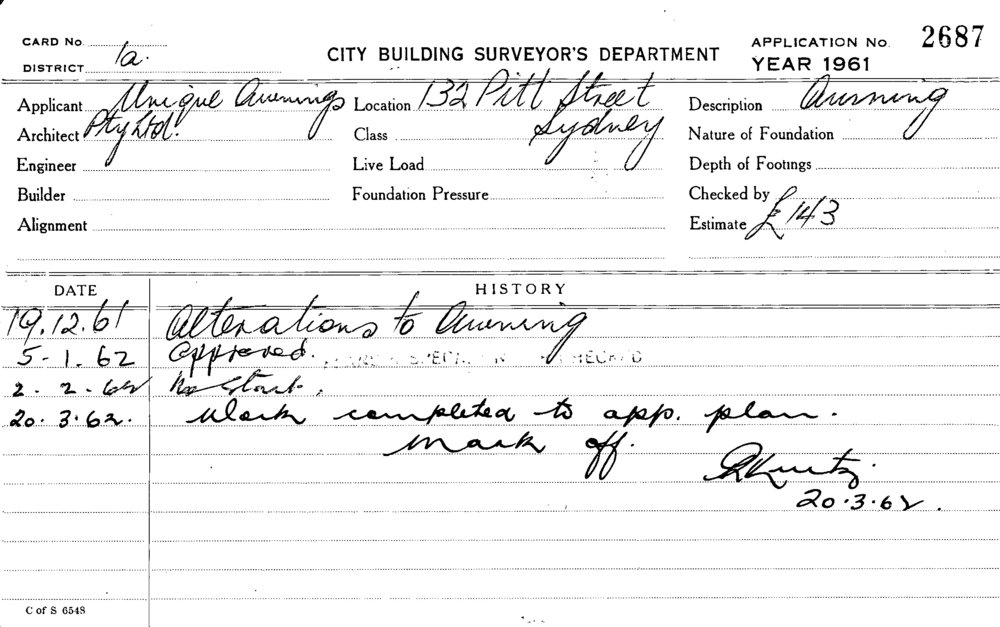 CARD No.
DISTRICT 1a.
CITY BUILDING SURVEYOR'S DEPARTMENT
APPLICATION No. 2687
YEAR 1961
Applicant Unique Awnings Location 132 Pitt Street Description Awning
Architect Pty Ltd. Class Sydney Nature of Foundation
Engineer Live Load Depth of Footings
Builder Foundation Pressure Checked by
Alignment Estimate £143
DATE HISTORY
19.12.61 Alterations to Awning
5-1.62 Approved.
2-2-62 No Start.
20.3.62. Work completed to app. plan.
Mark off.
Kurtz.
20.3.62.
C of S 6548